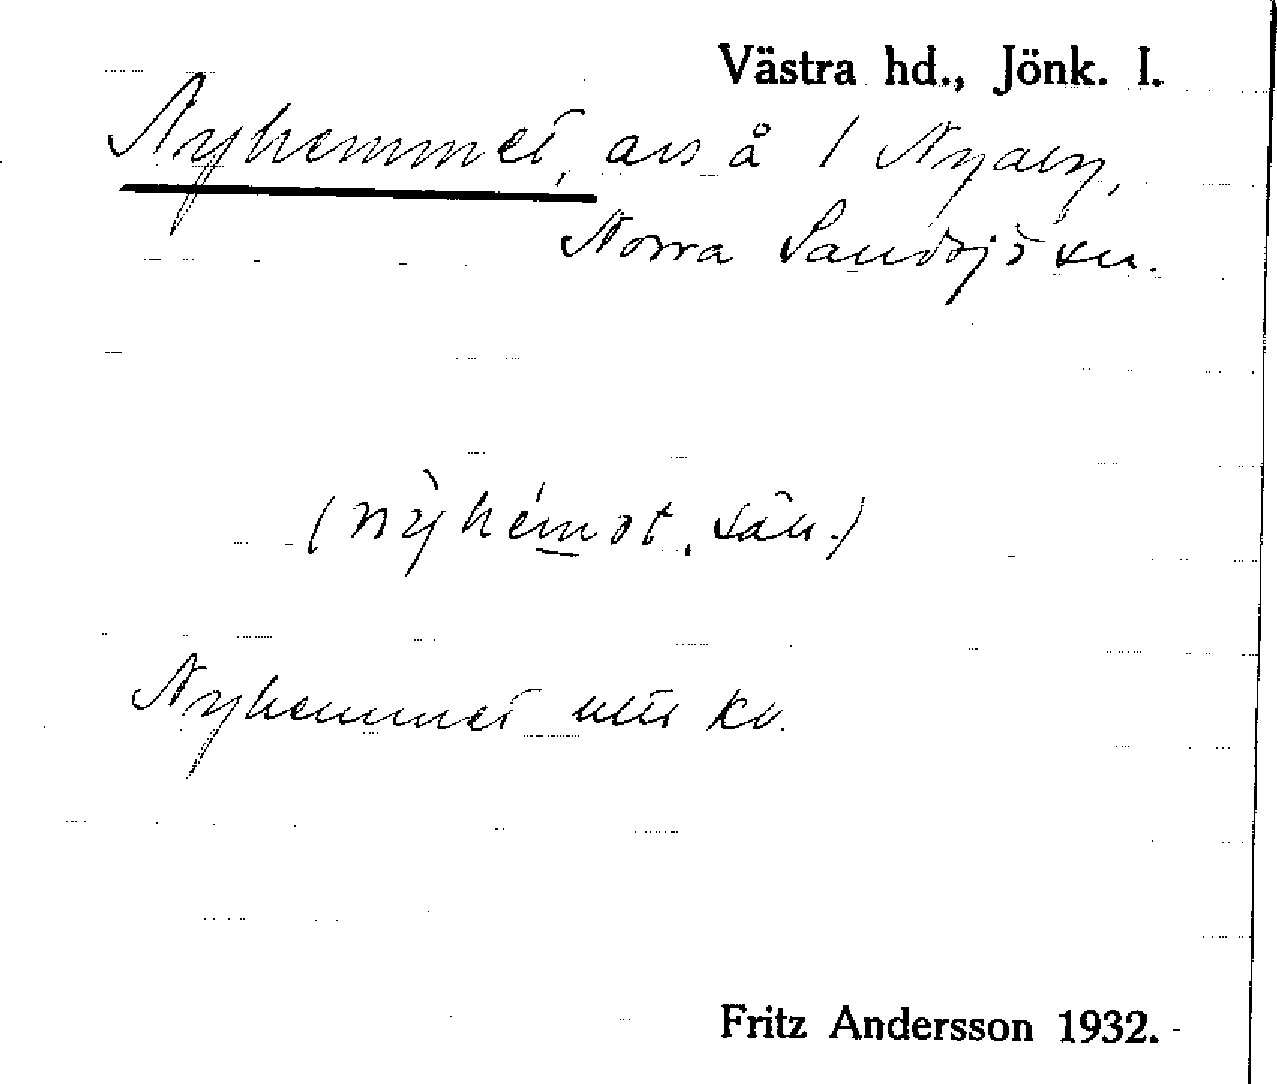 Västra hd., Jönk. l.
Nyhemmet, avs å 1 Nyaby,
Norra Sandsjö sn.
(nỳhém ət, sän.)
Nyhemmet utts kv.
Fritz Andersson 1932.